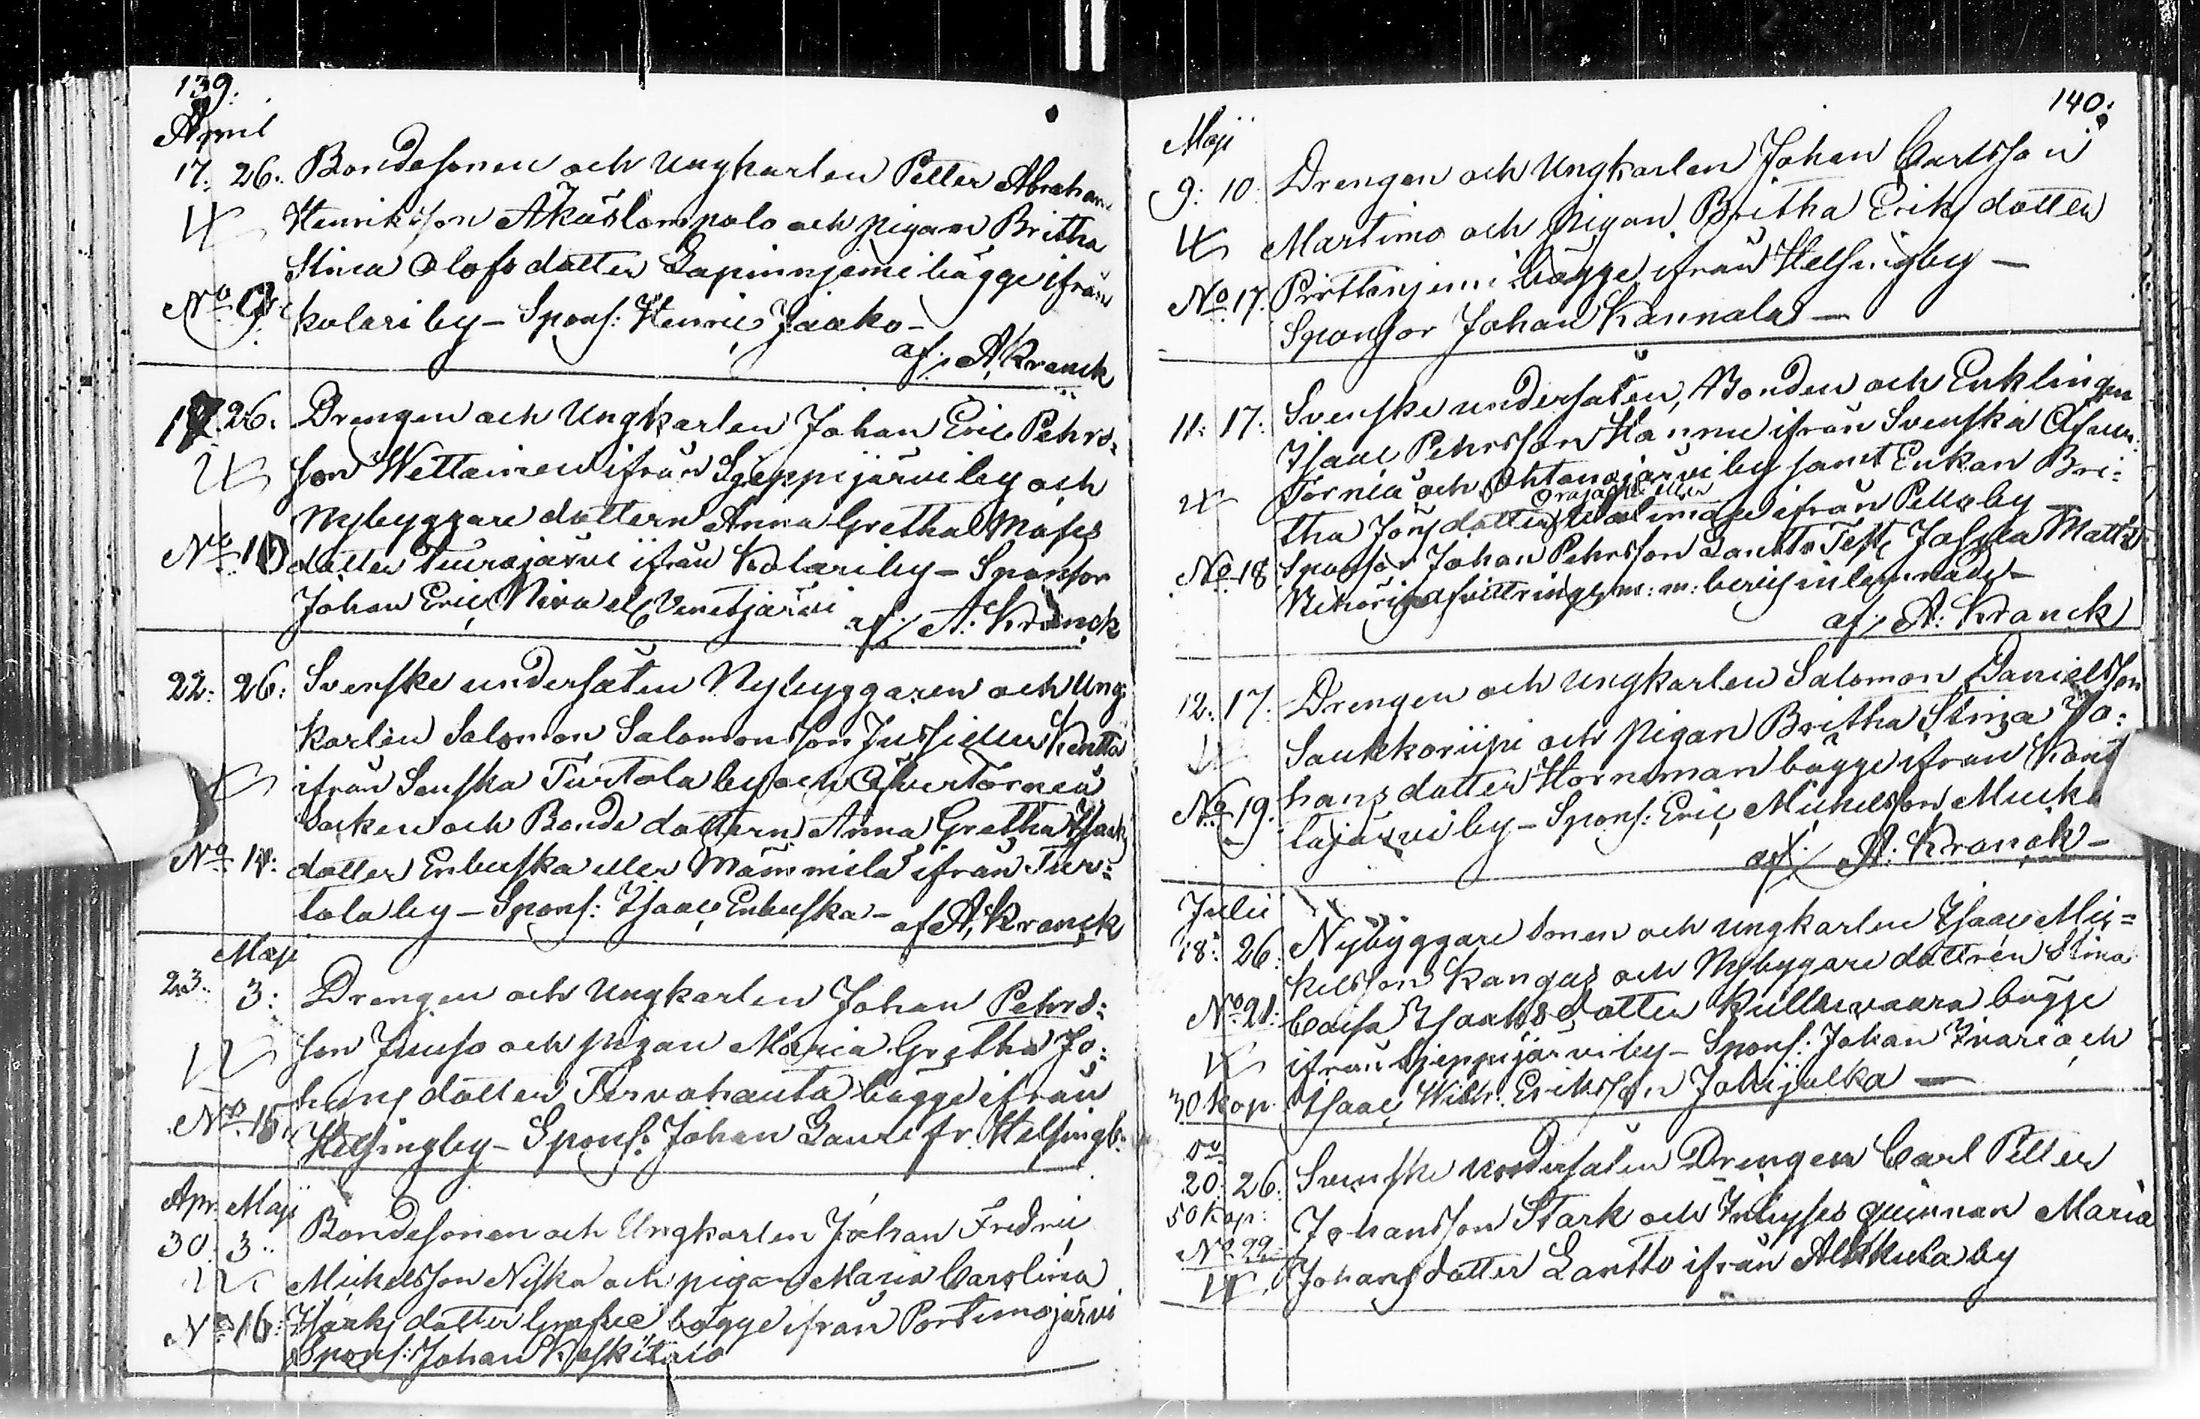 139.
April
17: 26. Bondesonen och Ungkarlen Petter Abraham
Henriksson Äkäslompolo och pigan Britha
Stina Olofsdotter Lapinnjemi bägge ifrån
No 9: kolari by - Spons: Henric Jaako -
af: A. Kranck
17. 26. Drengen och Ungkarlen Johan Eric Pehrs-
son Wettainen ifrån Sjeppijärvi by och
Nybyggare dottern Anna Gretha Mosis
No 10 dotter Teurajärvi ifrån Kolari by - Sponsor
Johan Eric Niva el Venetjärvi
af: A: Kranck
22: 26: Svenske undersåten Nybyggaren och Ung-
karlen Salomon Salomonsson Jussi eller Kenttä
ifrån Senska Turtola by och Öfver Torneå
Socken och Bonde dottern Anna Gretha Isacs
No 14: dotter Enbuska eller Mämmilä ifrån Tur-
tola by - Spons: Isaac Enbuska - af A. Kranck
Maji
23. 3: Drengen och Ungkarlen Johan Pehrs-
son Juuso och pigan Maria Gretha Jo-
hans dotter Tervahauta bägge ifrån
No 15. Helsingby - Spons: Johan Lauri fr. Helsingb.
Apr. Maji
30. 3. Bondesonen och Ungkarlen Johan Fredric
Mickelsson Niska och pigan Maria Carolina
No 16: Isacks dotter bägge ifrån Portimojärvi
Spons: Johan Keskitalo
140.
Maji
9: 10. Drengen och Ungkarlen Johan Carlsson
Martimo och pigan Britha Eriks dotter
No 17. Pirttinjemi bägge ifrån Helsingby -
Sponsor Johan Kannala -
11: 17: Svenske undersåten, Bonden och Enklingen
Isaac Pehrsson Hannu ifrån Svenska Öfver
Torneå och Ohtanajärvi by samt Enkan Bri-
eller
tha Jöns dotter ifrån Pello by -
No 18 Sponsor Johan Pehrsson Lantto Test. Josva Matts
m: m: bevis inlemnade -
af: A: Kranck
12: 17: Drengen och Ungkarlen Salomon Danielsson
Saukkoriipi och pigan Britha Stina Jo-
No 19. hans dotter Hornman bägge ifrån
lajärvi by - Spons: Eric Mickelsson
af: A: Kranck -
Julii
18: 26. Nybyggare sonen och ungkarlen Isaac Mic-
kelsson Kangas och Nybygare dottren Stina
No 21: Caisa Isaaks dotter Kullervaara bägge
ifrån Sjeppijärvi by - Spons: Johan Ivari och
30 Kop. Isaac Wilh. Eriksson Jokijalka -
20. 26. Svenske undersåten Drengen Carl Petter
50 Kop: Johansson Stark och Inhyses qvinnan Maria
No 22 Johans dotter Lantto ifrån Alkkula by